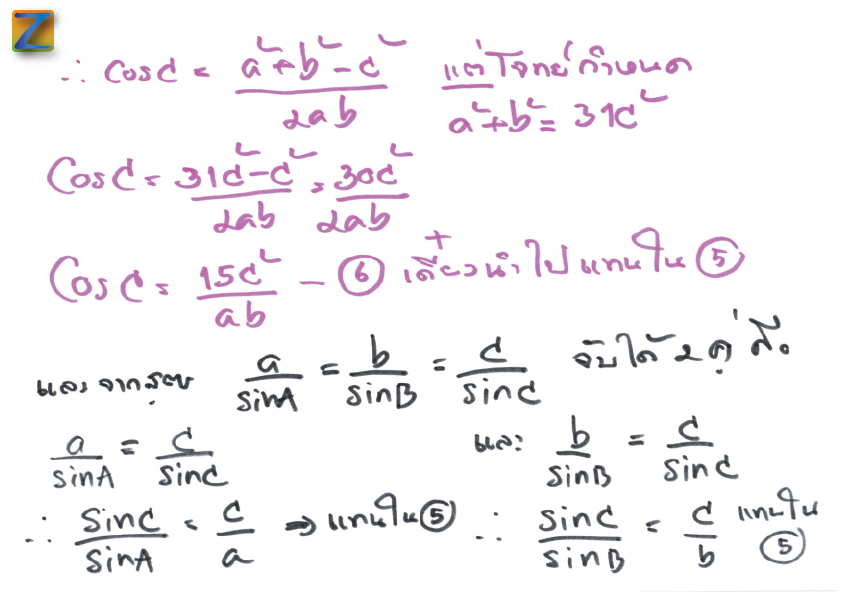 Z
∴ cosC = (a²+b²-c²)/(2ab) แต่โจทย์กำหนด
a²+b² = 31c²
CosC = (31c²-c²)/(2ab) = 30c²/(2ab)
CosC = 15c²/(ab) - ⑥ เดี๋ยวนำไปแทนใน ⑤
และจากสูตร a/sinA = b/sinB = c/sinC จับได้ 2 คู่ คือ
a/sinA = c/sinC และ b/sinB = c/sinC
∴ sinC/sinA = c/a ⇒ แทนใน ⑤ ∴ sinC/sinB = c/b แทนใน ⑤